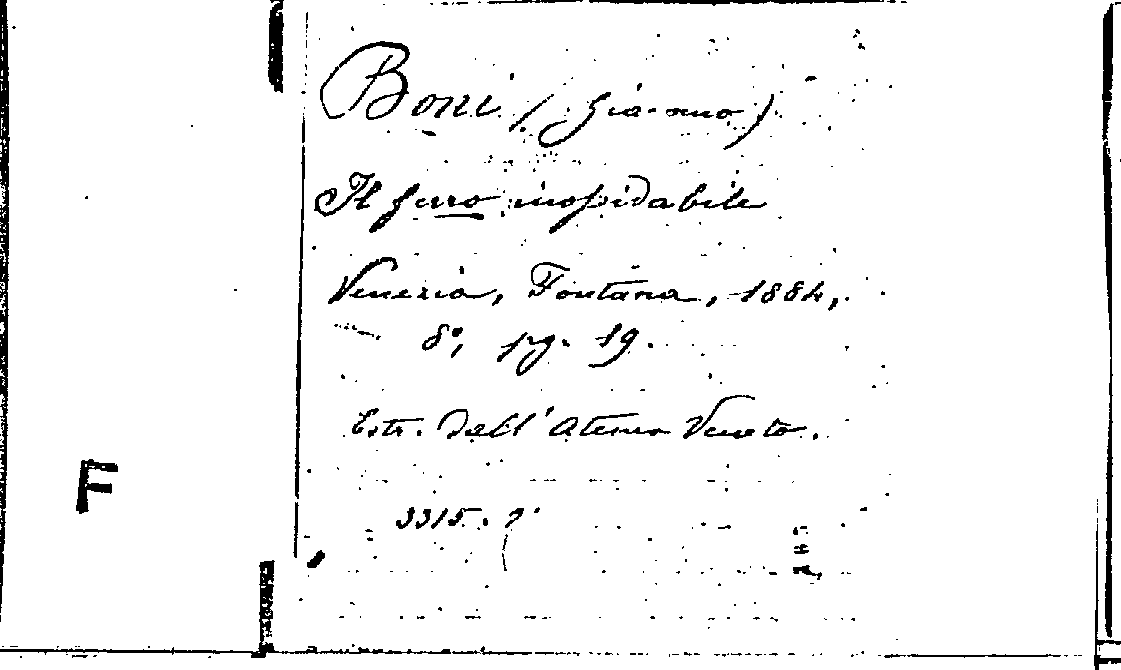 Boni (Giacomo)
Il ferro inossidabile
Venezia, Fontana, 1884,
8°, pg. 19.
Estr. dall'Ateneo Veneto.
F
3315.